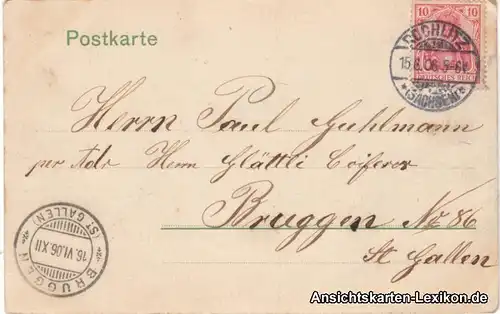 Postkarte
10 10
DEUTSCHES REICH
ROCHLITZ
15.6.06. 5-6N.
*(SACHSEN)*
Herrn Paul Guhlmann
per Adr Herrn Glättli Coiferer
Bruggen No 86
St Gallen
(ST. GALLEN)
16.VI.06.XII
BRUGGEN
Ansichtskarten-Lexikon.de